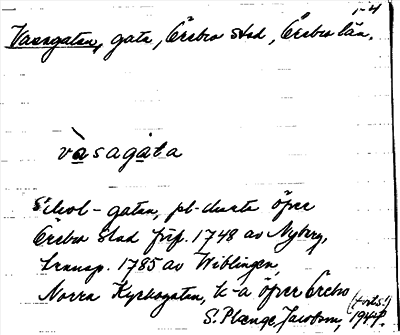 1-4
Vasagatan, gata, Örebro stad, Örebro län.
vàsagáta
Skol-gatan, pl-charta öfver
Örebro Stad förf. 1748 av Nyberg,
transp. 1785 av Wiblingen,
Norra Kyrkogatan, k-a öfver Örebro
(forts!)
S. Plænge Jacobson, 1944.